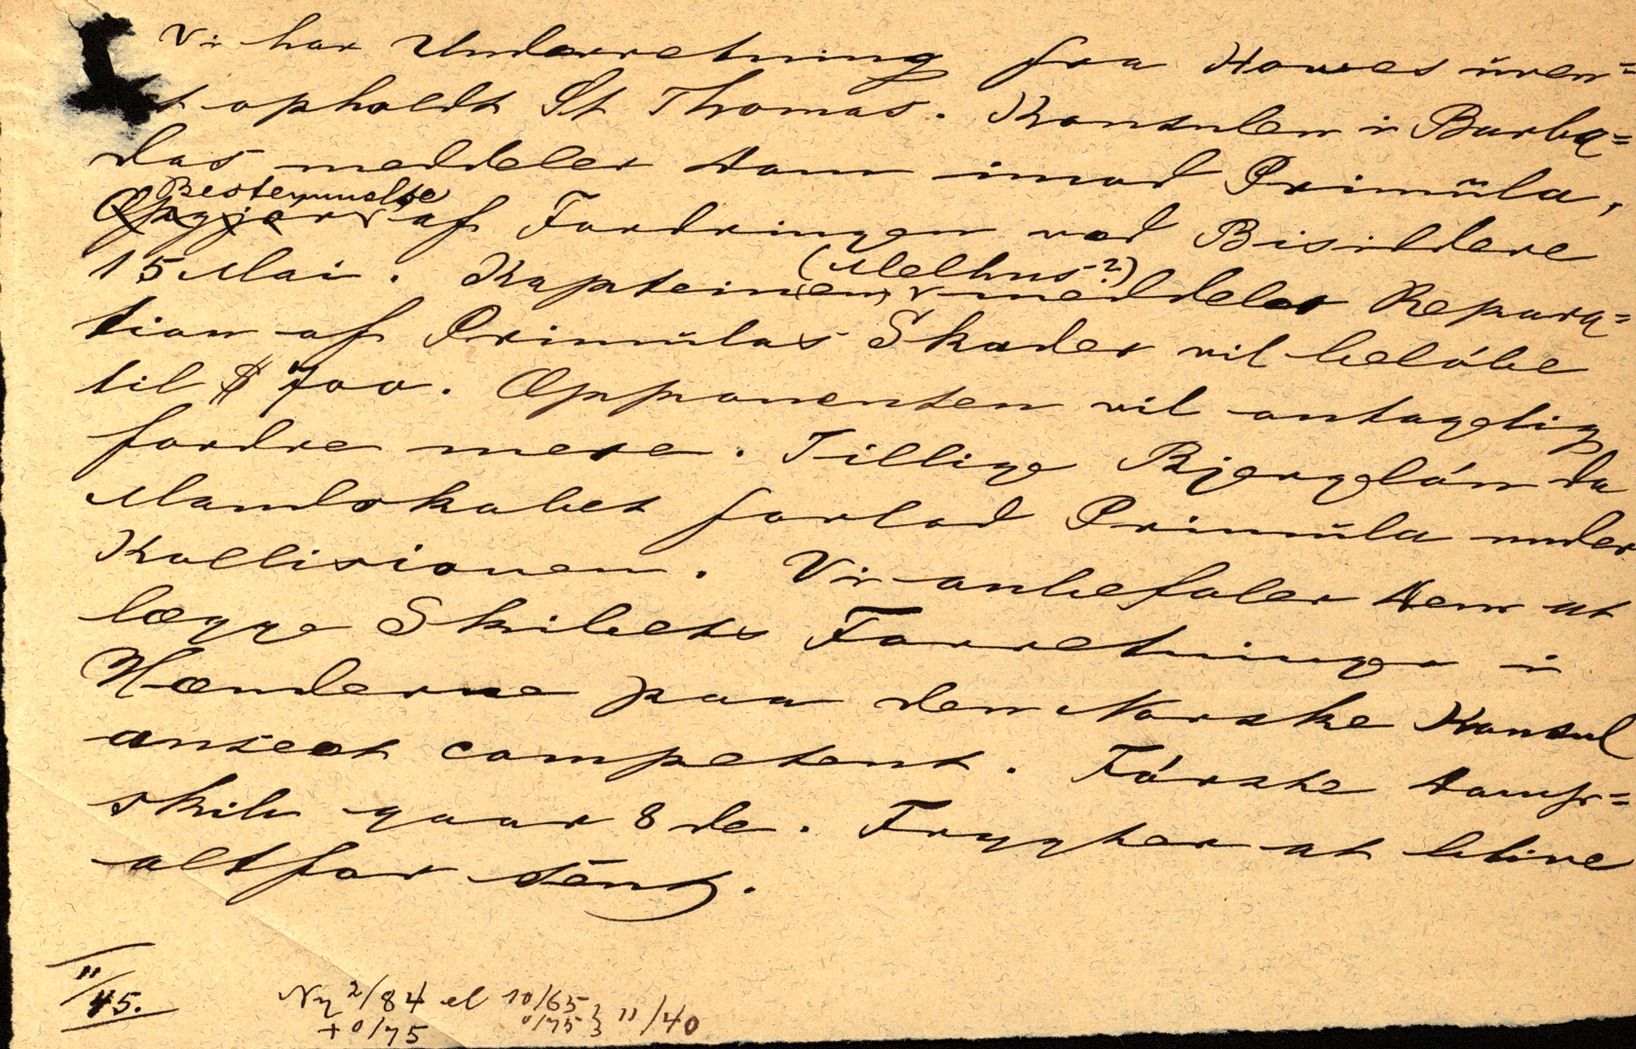 Vi har Underretning fra Howes uven=
t opholdt St Thomas. Konsulen i Barba=
das meddeler Dom imod Primŭla,
Bestemmelse
Opgjør af Fordringen ved Bisiddere
15 Mai. Kapteinen (Melhus?) meddeler Repara=
tion af Primŭlas Skader vil belóbe
til $ 700. Opponenten vil antagelig
fordre mere. Tillige Bjergelón da
Mandskabet forlod Primŭla under
Kollisionen. Vi anbefaler Dem at
lægge Skibets Forretninger i
Hænderne paa den Norske Konsul
anseet competent. Fórste Damp=
skib gaar 8de. Frygter at blive
altfor sent.
11/45.
Ny 2/84 el 10/65 } 11/40
+0/75 0/75